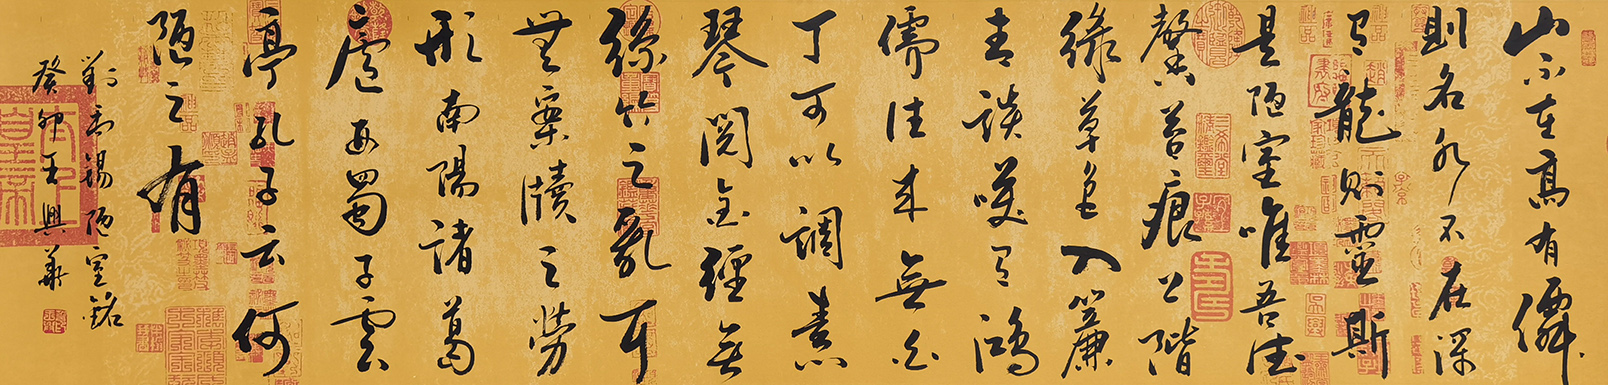 山不在高有僊
則名水不在深
有龍則靈斯
是陋室唯吾德
馨苔痕上階
綠草色入簾
青談咲有鴻
儒往來無白
丁可以調素
琴閱金經無
絲竹之亂耳
無案牘之勞
形南陽諸葛
廬西蜀子雲
亭孔子云何
陋之有
劉禹錫陋室銘
癸卯王興華